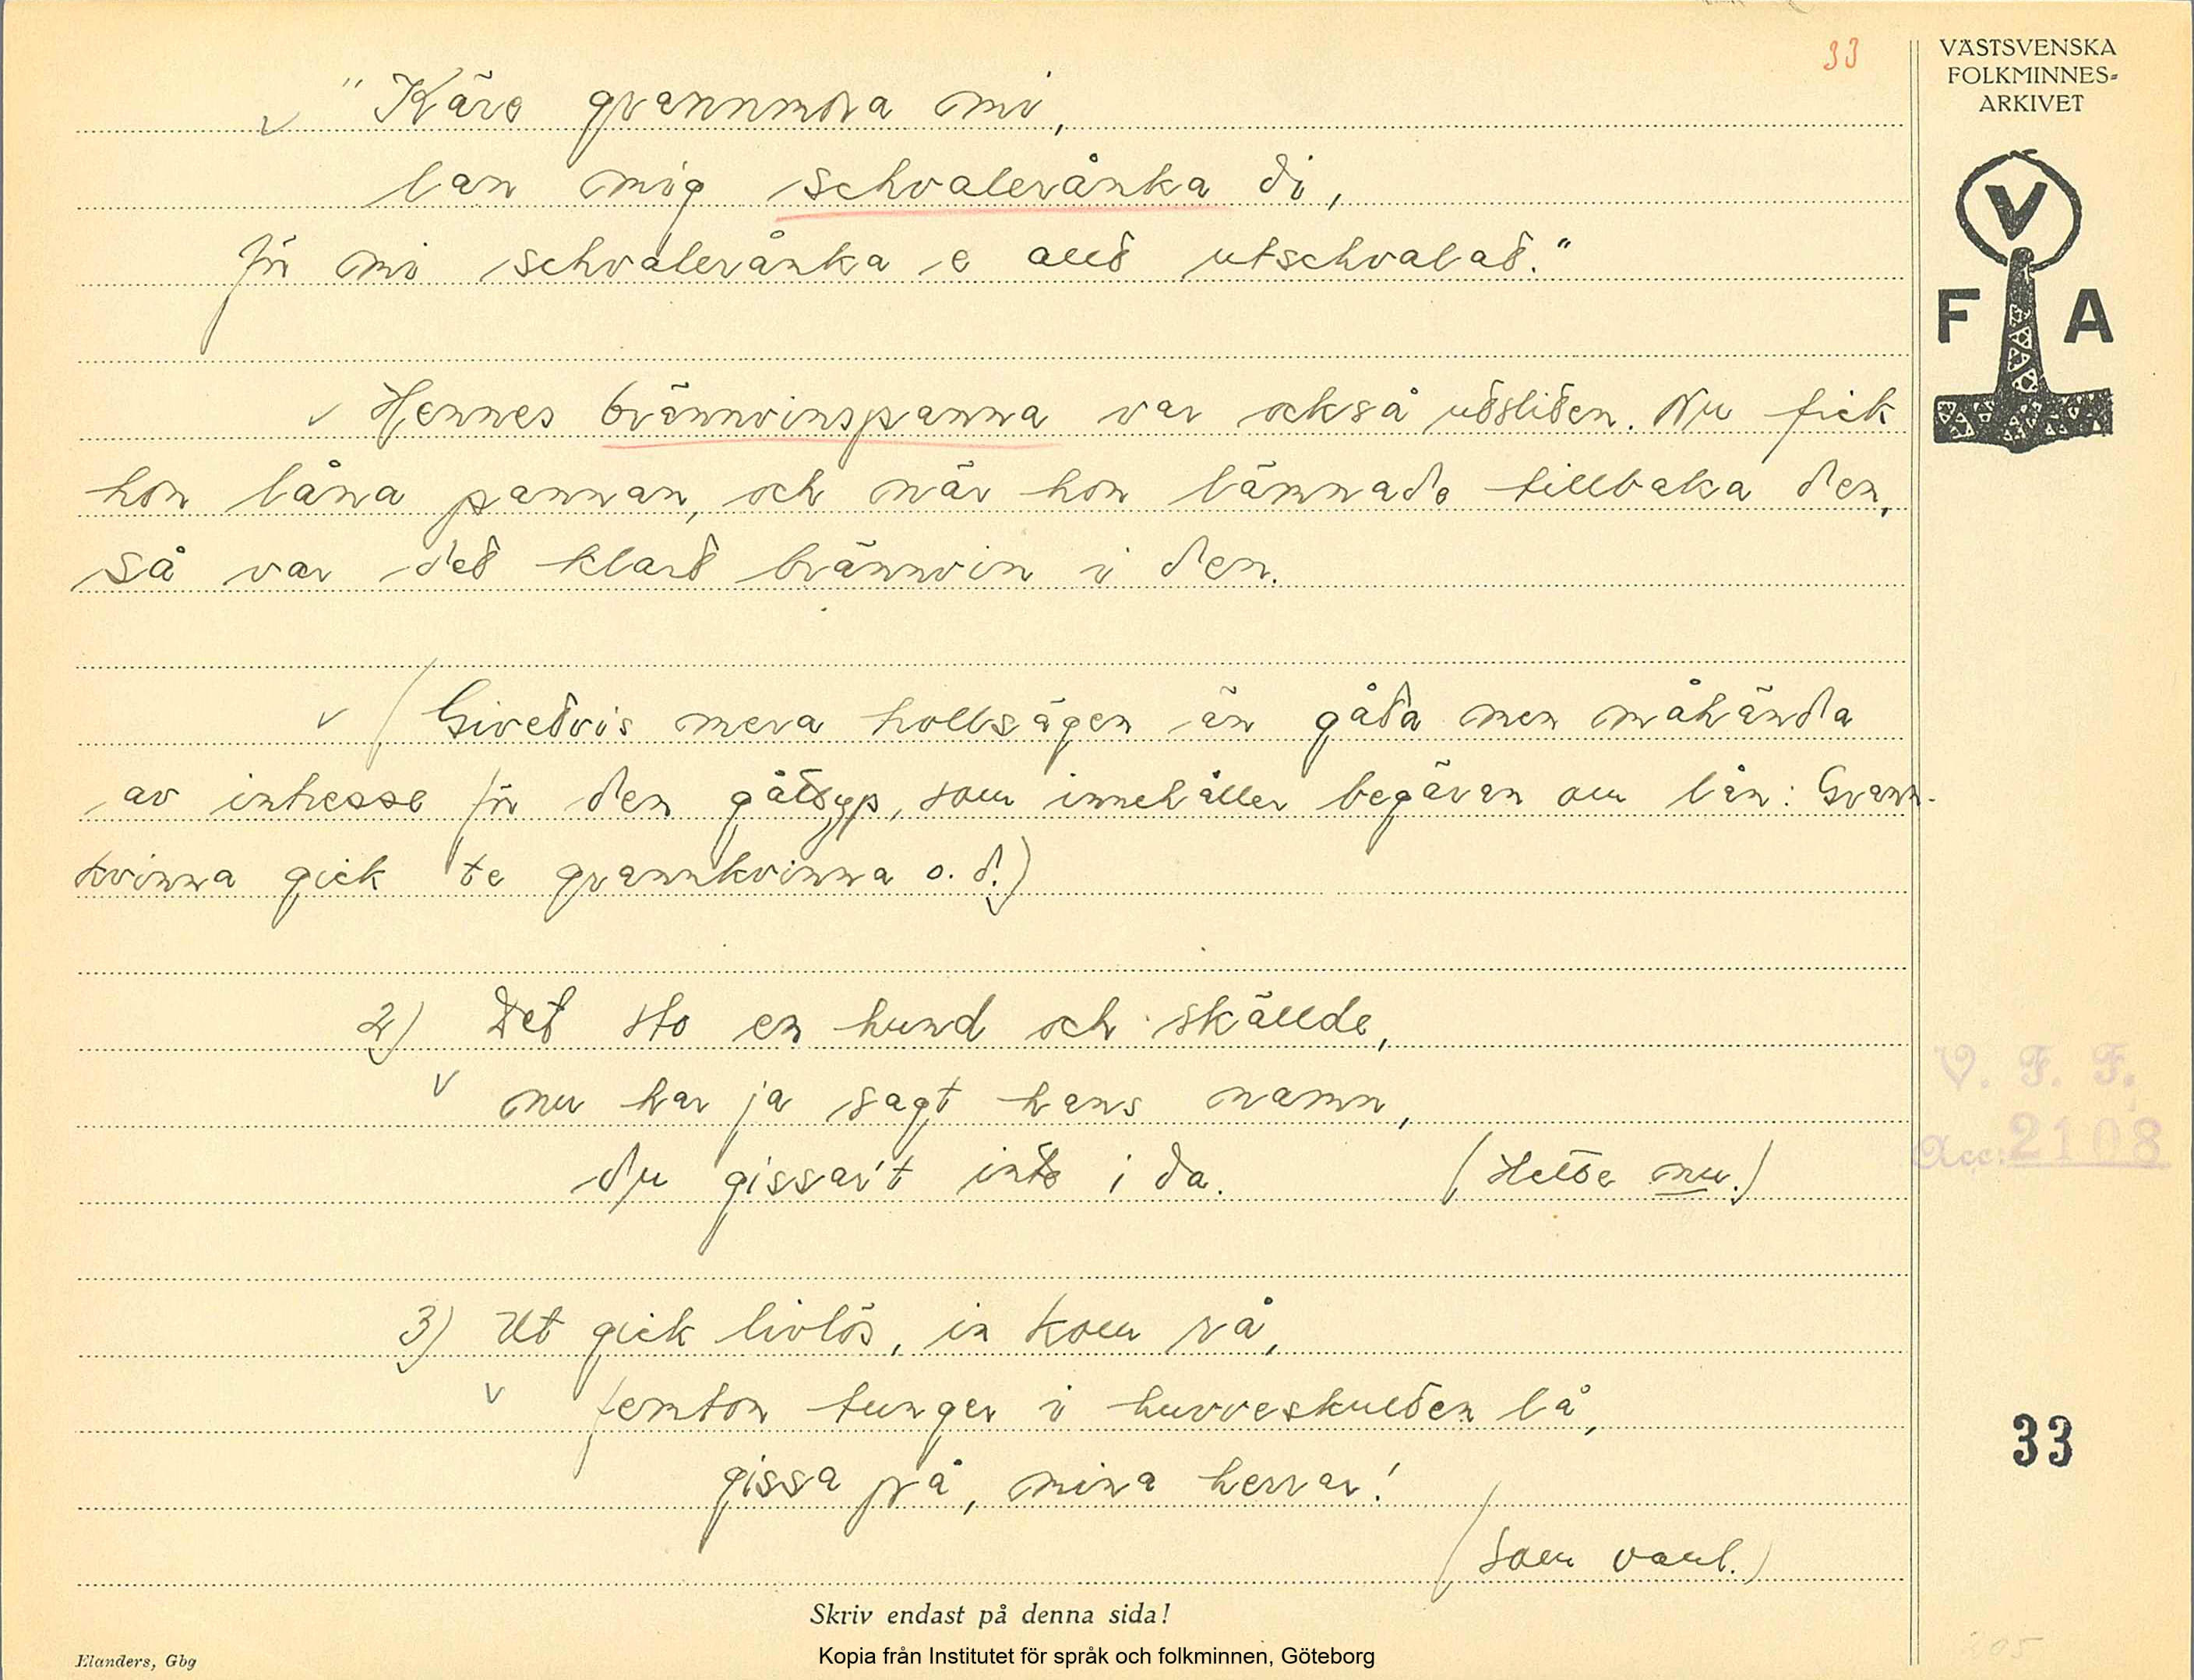 33
VÄSTSVENSKA
FOLKMINNES-
ARKIVET
V
F A
"Käre grannmora mi,
lan mig schvaleränka di,
för mi schvaleränka e allt utschvalat."
Hennes brännvinspanna var också utsliten. Nu fick
hon låna pannan, och när hon lämnade tillbaka den,
så var det klart brännvin i den.
(Givetvis mera trollsägen än gåta men måhända
av intresse för den gåttyp, som innehåller begäran om lån: Grann-
kvinna gick te grannkvinna o. d.)
2) Det sto en hund och skällde,
nu har ja sagt hans namn,
du gissar't inte i da. (Hette nu.)
3) Ut gick livlös, in kom rå,
femton tunger i huvveskulten lå,
gissa på, mina herrar!
(Som vanl.)
V. F. F.
Acc: 2108
33
Skriv endast på denna sida!
Kopia från Institutet för språk och folkminnen, Göteborg
Elanders, Gbg